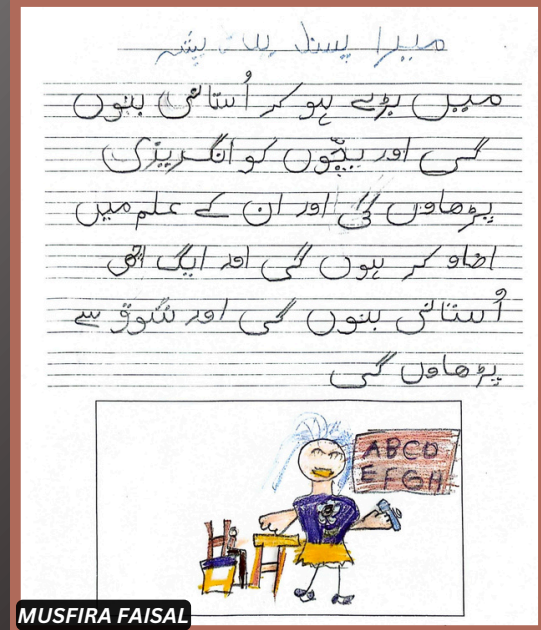 میرا پسندیدہ پیشہ
میں بڑے ہو کر اُستانی بنوں
گی اور بچّوں کو انگریزی
پڑھاوں گی اور ان کے علم میں
اضاو کر ہوں گی اور ایگ اچھی
اُستانی بنوں گی اور شوق سے
پڑھاوں گی
ABCD
EFGH
MUSFIRA FAISAL